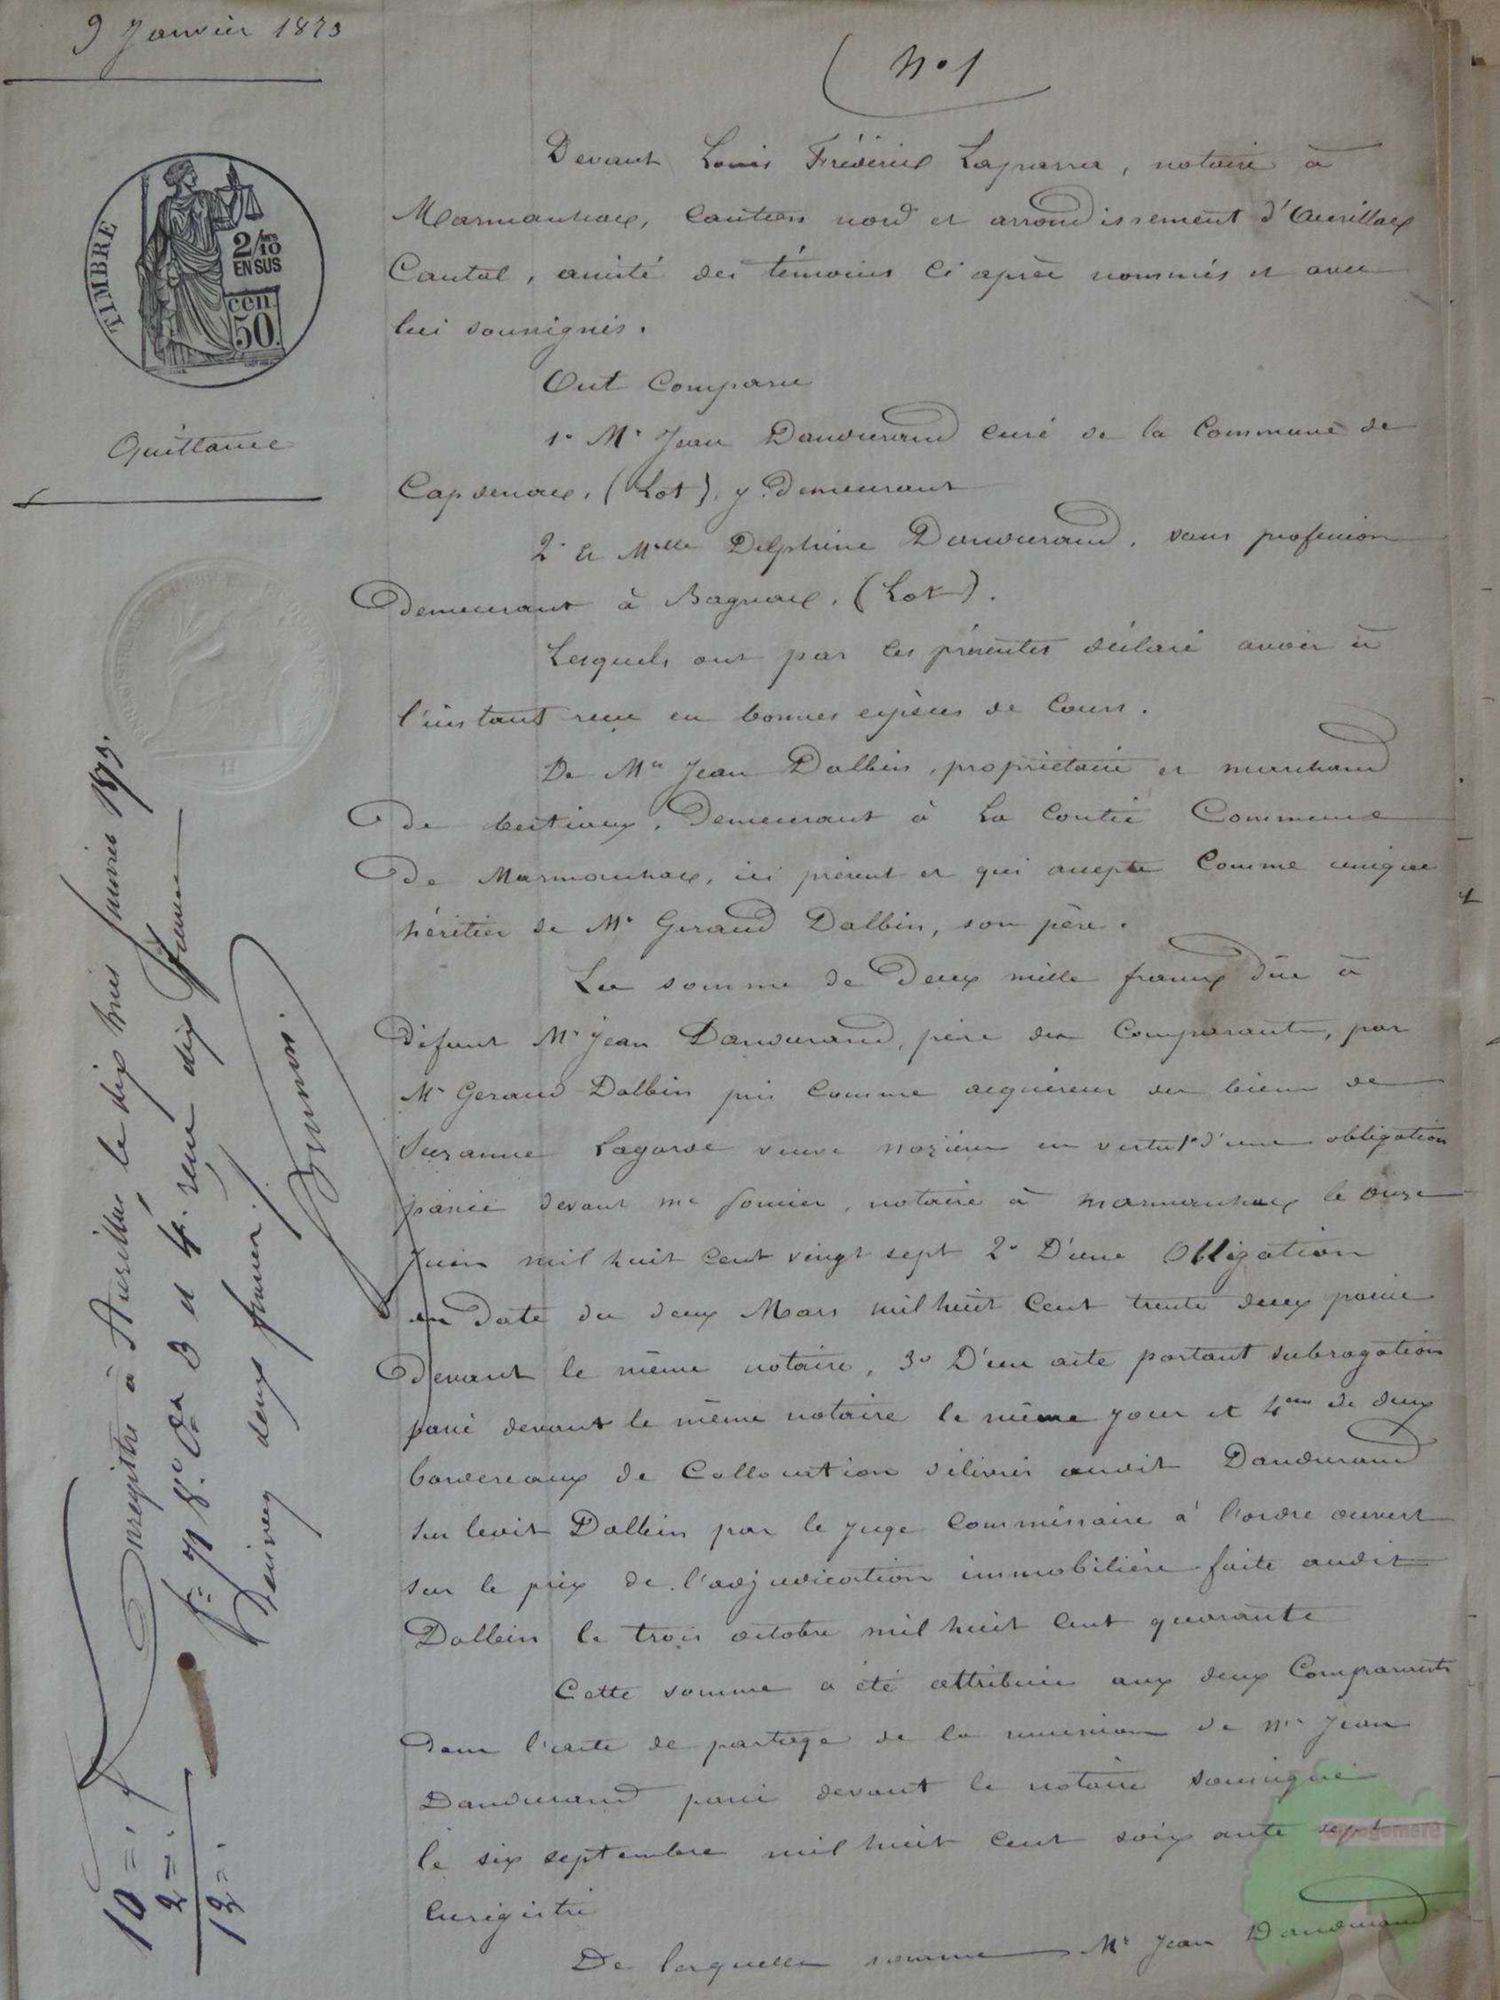 9 Janvier 1873
N° 1
TIMBRE
2/10 EN SUS
cen. 50.
Quittance
Devant Louis Fréderic Laparra, notaire à
Marmanhac, canton nord et arrondissement d'Aurillac
Cantal, assisté des témoins ci après nommés et avec
lui soussignés.
Ont Comparu
1° Mr Jean Dandurand curé de la Commune de
Capdenac, (Lot), y demeurant
2° Et Melle Delphine Dandurand, sans profession
demeurant à Bagnac, (Lot).
Lesquels ont par ces présentes déclaré avoir à
l'instant reçu en bonnes espèces de Cours.
De Mr Jean Dalbin, propriétaire et marchand
de bestiaux, demeurant à La Contie Commune
de Marmanhac, ici présent et qui accepte Comme unique
héritier de Mr Geraud Dalbin, son père.
La somme de Deux mille francs dûe à
défunt Mr Jean Dandurand, père des Comparants, par
Mr Geraud Dalbin pris Comme acquéreur des biens de
Suzanne Lagarde veuve en vertu 1° d'une obligation
passée devant me, notaire à Marmanhac le onze
Juin mil huit cent vingt sept 2° D'une Obligation
en date du deux Mars mil huit Cent trente deux passée
devant le même notaire, 3° D'un acte portant subrogation
passé devant le même notaire le même jour et 4° de deux
bordereaux de Collocation délivrés audit Dandurand
sur ledit Dalbin par le juge Commissaire à l'ordre ouvert
sur le prix de l'adjudication immobilière faite audit
Dalbin le trois octobre mil huit cent quarante
Cette somme a été attribuée aux deux Comparants
dans l'acte de partage de la succession de Mr Jean
Dandurand passé devant le notaire soussigné
le six septembre mil huit cent soixante sept
Enrégistré
De laquelle somme Mr Jean Dandurand
Enregistré à Aurillac le dix huit Janvier 1873.
f° 71 r° 3 et 4. reçu dix francs
Décimes deux francs.
10 = "
2 = "
12 = "